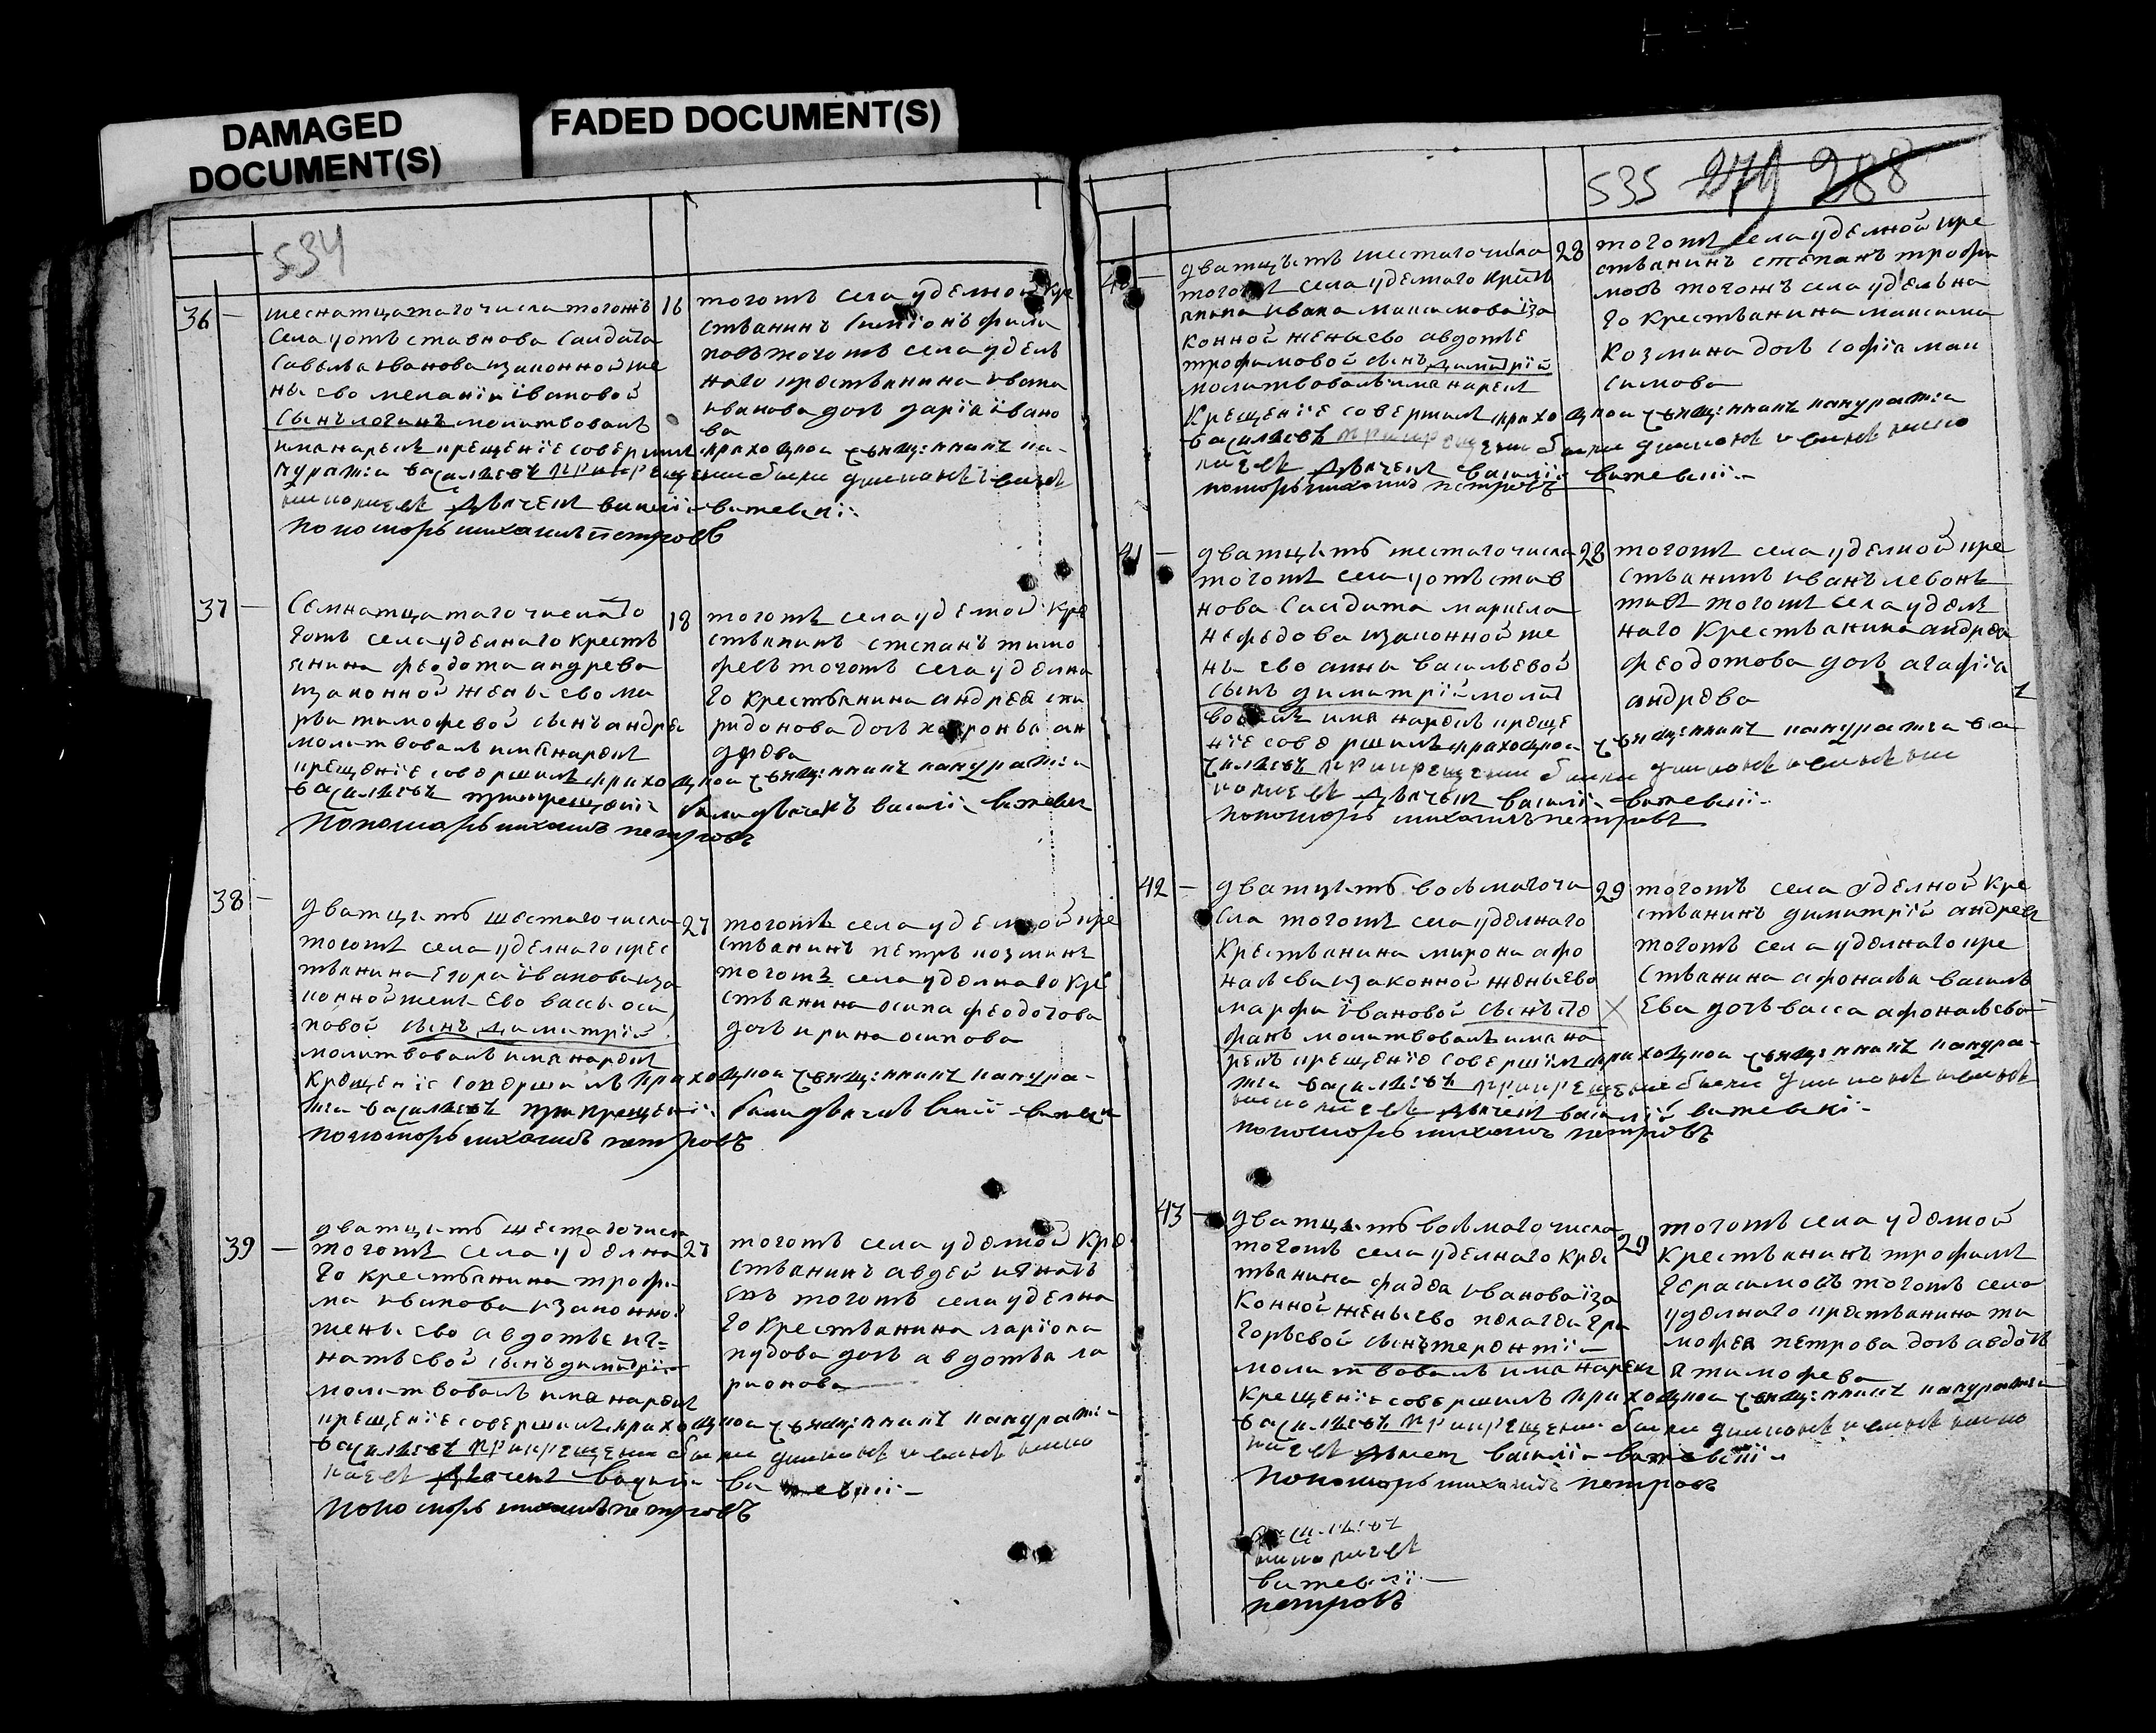 DAMAGED
DOCUMENT(S)
FADED DOCUMENT(S)
534
36 —
шеснатцатаго числа тогожъ
села уотъставнова салдата
савелья иванова изаконной же
ны ево меланiи iвановой
сынъ логинъ молитвовалъ
имя нарекъ крещенiе совершилъ приходцкой священникъ панкратiй
василиевъ при крещенiи были дияконъ
дьячекъ василiй витевскiй
пономарь михаилъ петровъ
16
тогожъ села уделной кре
стьянинъ симiонъ фили
повъ тогожъ села удель
наго крестьянина ивана
иванова дочь дарiя iвано
ва
37 —
семнатцатаго числа то
гожъ села уделнаго кресть
янина феодота андрева
изаконной жены ево ма
рьи тимофевой сынъ андре
молитвовалъ имя нарекъ
крещенiе совершилъ приходцкой священникъ панкратiй
василиевъ при крещенiи были дьячекъ василiй витевск
пономарь михаилъ петровъ
18
тогожъ села уделной кре
стьянинъ степанъ тимо
февъ тогожъ села уделна
го крестьянина андрея спи
ридонова дочь хавронья ан
древа
38 —
дватцать шестаго числа
тогожъ села уделнаго крес
тьянина егора iванова иза
конной жены ево вассы оси
повой сынъ димитрiй
молитвовалъ имя нарекъ
крещенiе совершилъ приходцкой священникъ панкра-
тiй василиевъ при крещенiи были дьячекъ витевск
пономарь михаилъ петровъ
27
тогожъ села уделной кре
стьянинъ петръ козминъ
тогожъ села уделнаго кре
стьянина осипа феодотова
дочь ирина осипова
39 —
дватцать шестаго числа
тогожъ села уделна
го крестьянина трофи
ма иванова изаконной
жены ево авдотьи иг=
натьевой сынъ димитрiй
молитвовалъ имя нарекъ
крещенiе совершилъ приходцкой священникъ панкратiй
василиевъ при крещенiи были дияконъ
дьячекъ василiй витевскiй
пономарь михаилъ петровъ
27
тогожъ села уделной кре
стьянинъ авдей игнать
евъ тогожъ села уделна
го крестьянина ларiона
кудова дочь авдотья ла
рионова
535 279 288
40 —
дватцать шестаго числа
тогожъ села уделнаго кресть
янина ивана максимова iза
конной жены ево авдотье
трофимовой сынъ димитрiй
молитвовалъ имя нарекъ
крещенiе совершилъ приходцкой священникъ панкратiй
василиевъ при крещенiи были дияконъ
дьячекъ василiй витевскiй
пономарь михаилъ петровъ
28
тогожъ села уделной кре
стьянинъ степанъ трофи
мовъ тогожъ села удельна
го крестьянина максима
козмина дочь софiя мак
симова
41 —
дватцать шестаго числа
тогожъ села уотъстав
нова салдата маркела
нефедова изаконной же
ны ево анны васильевой
сынъ димитрiй молит
вовалъ имя нарекъ креще
нiе совершилъ приходцкой священникъ панкратiй ва
силиевъ при крещенiи были дияконъ
дьячекъ василiй витевскiй
пономарь михаилъ петровъ
28
тогожъ села уделной кре
стьянинъ иванъ левонь
тивъ тогожъ села удель
наго крестьянина андрея
феодотова дочь агафiя
андрева
42 —
дватцать восьмаго чи
сла тогожъ села уделнаго
крестьянина мирона афо
насьева изаконной жены ево
марфы iвановой сынъ сте
фанъ молитвовалъ имя на
рекъ крещенiе совершилъ приходцкой священникъ панкра-
тiй василиевъ при крещенiи были дияконъ
дьячекъ василiй витевскiй
пономарь михаилъ петровъ
29
тогожъ села уделной кре
стьянинъ димитрiй андревъ
тогожъ села уделнаго кре
стьянина афонасья василь
ева дочь васса афонасьева
43 —
дватцать восьмаго числа
тогожъ села уделнаго крес
тьянина фадея иванова iза
конной жены ево пелагеи гри
горьевой сынъ терентiй
молитвовалъ имя нарекъ
крещенiе совершилъ приходцкой священникъ панкратiй
василиевъ при крещенiи были дияконъ
дьячекъ василiй витевскiй
пономарь михаилъ петровъ
29
тогожъ села уделной
крестьянинъ трофимъ
герасимовъ тогожъ села
уделнаго крестьянина ти
мофея петрова дочь авдоть
я тимофева
василиевъ
витевскiй
петровъ